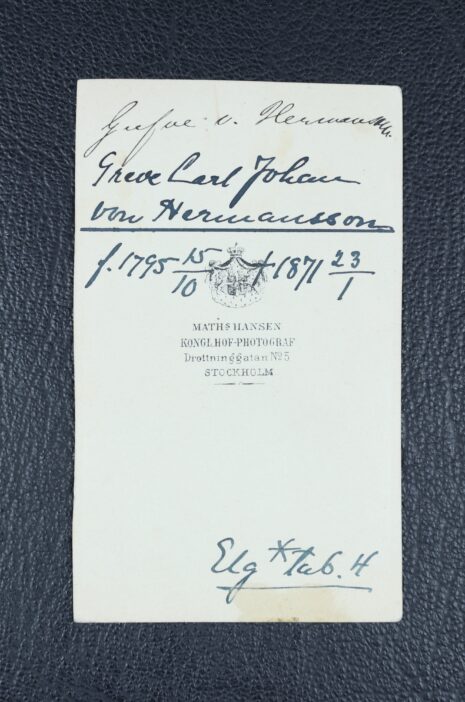 Grefve v. Hermansson
Greve Carl Johan
von Hermansson
f. 1795 15/10 † 1871 23/1
MATHS HANSEN
KONGL. HOF-PHOTOGRAF
Drottninggatan No 5
STOCKHOLM
Elg * tab. 4